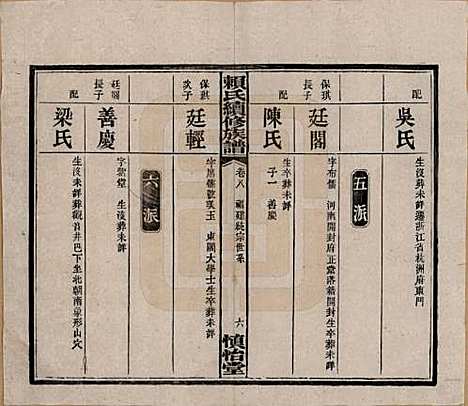 配
吳氏
生沒葬未詳遷浙江省杭洲府東門
五派
保琪長子
廷閣
字布儒 河南開封府正堂落籍開封生卒葬未詳
配
陳氏
生卒葬未詳
子一 善慶
賴氏續修族譜
卷八 福建統宗世系 六
慎怡堂
保琪次子
廷輕
東閣大學士生卒葬未詳
六派
廷閣長子
善慶
生沒葬未詳
配
梁氏
生沒未詳葬觀音井巴下坐北朝南象形山穴